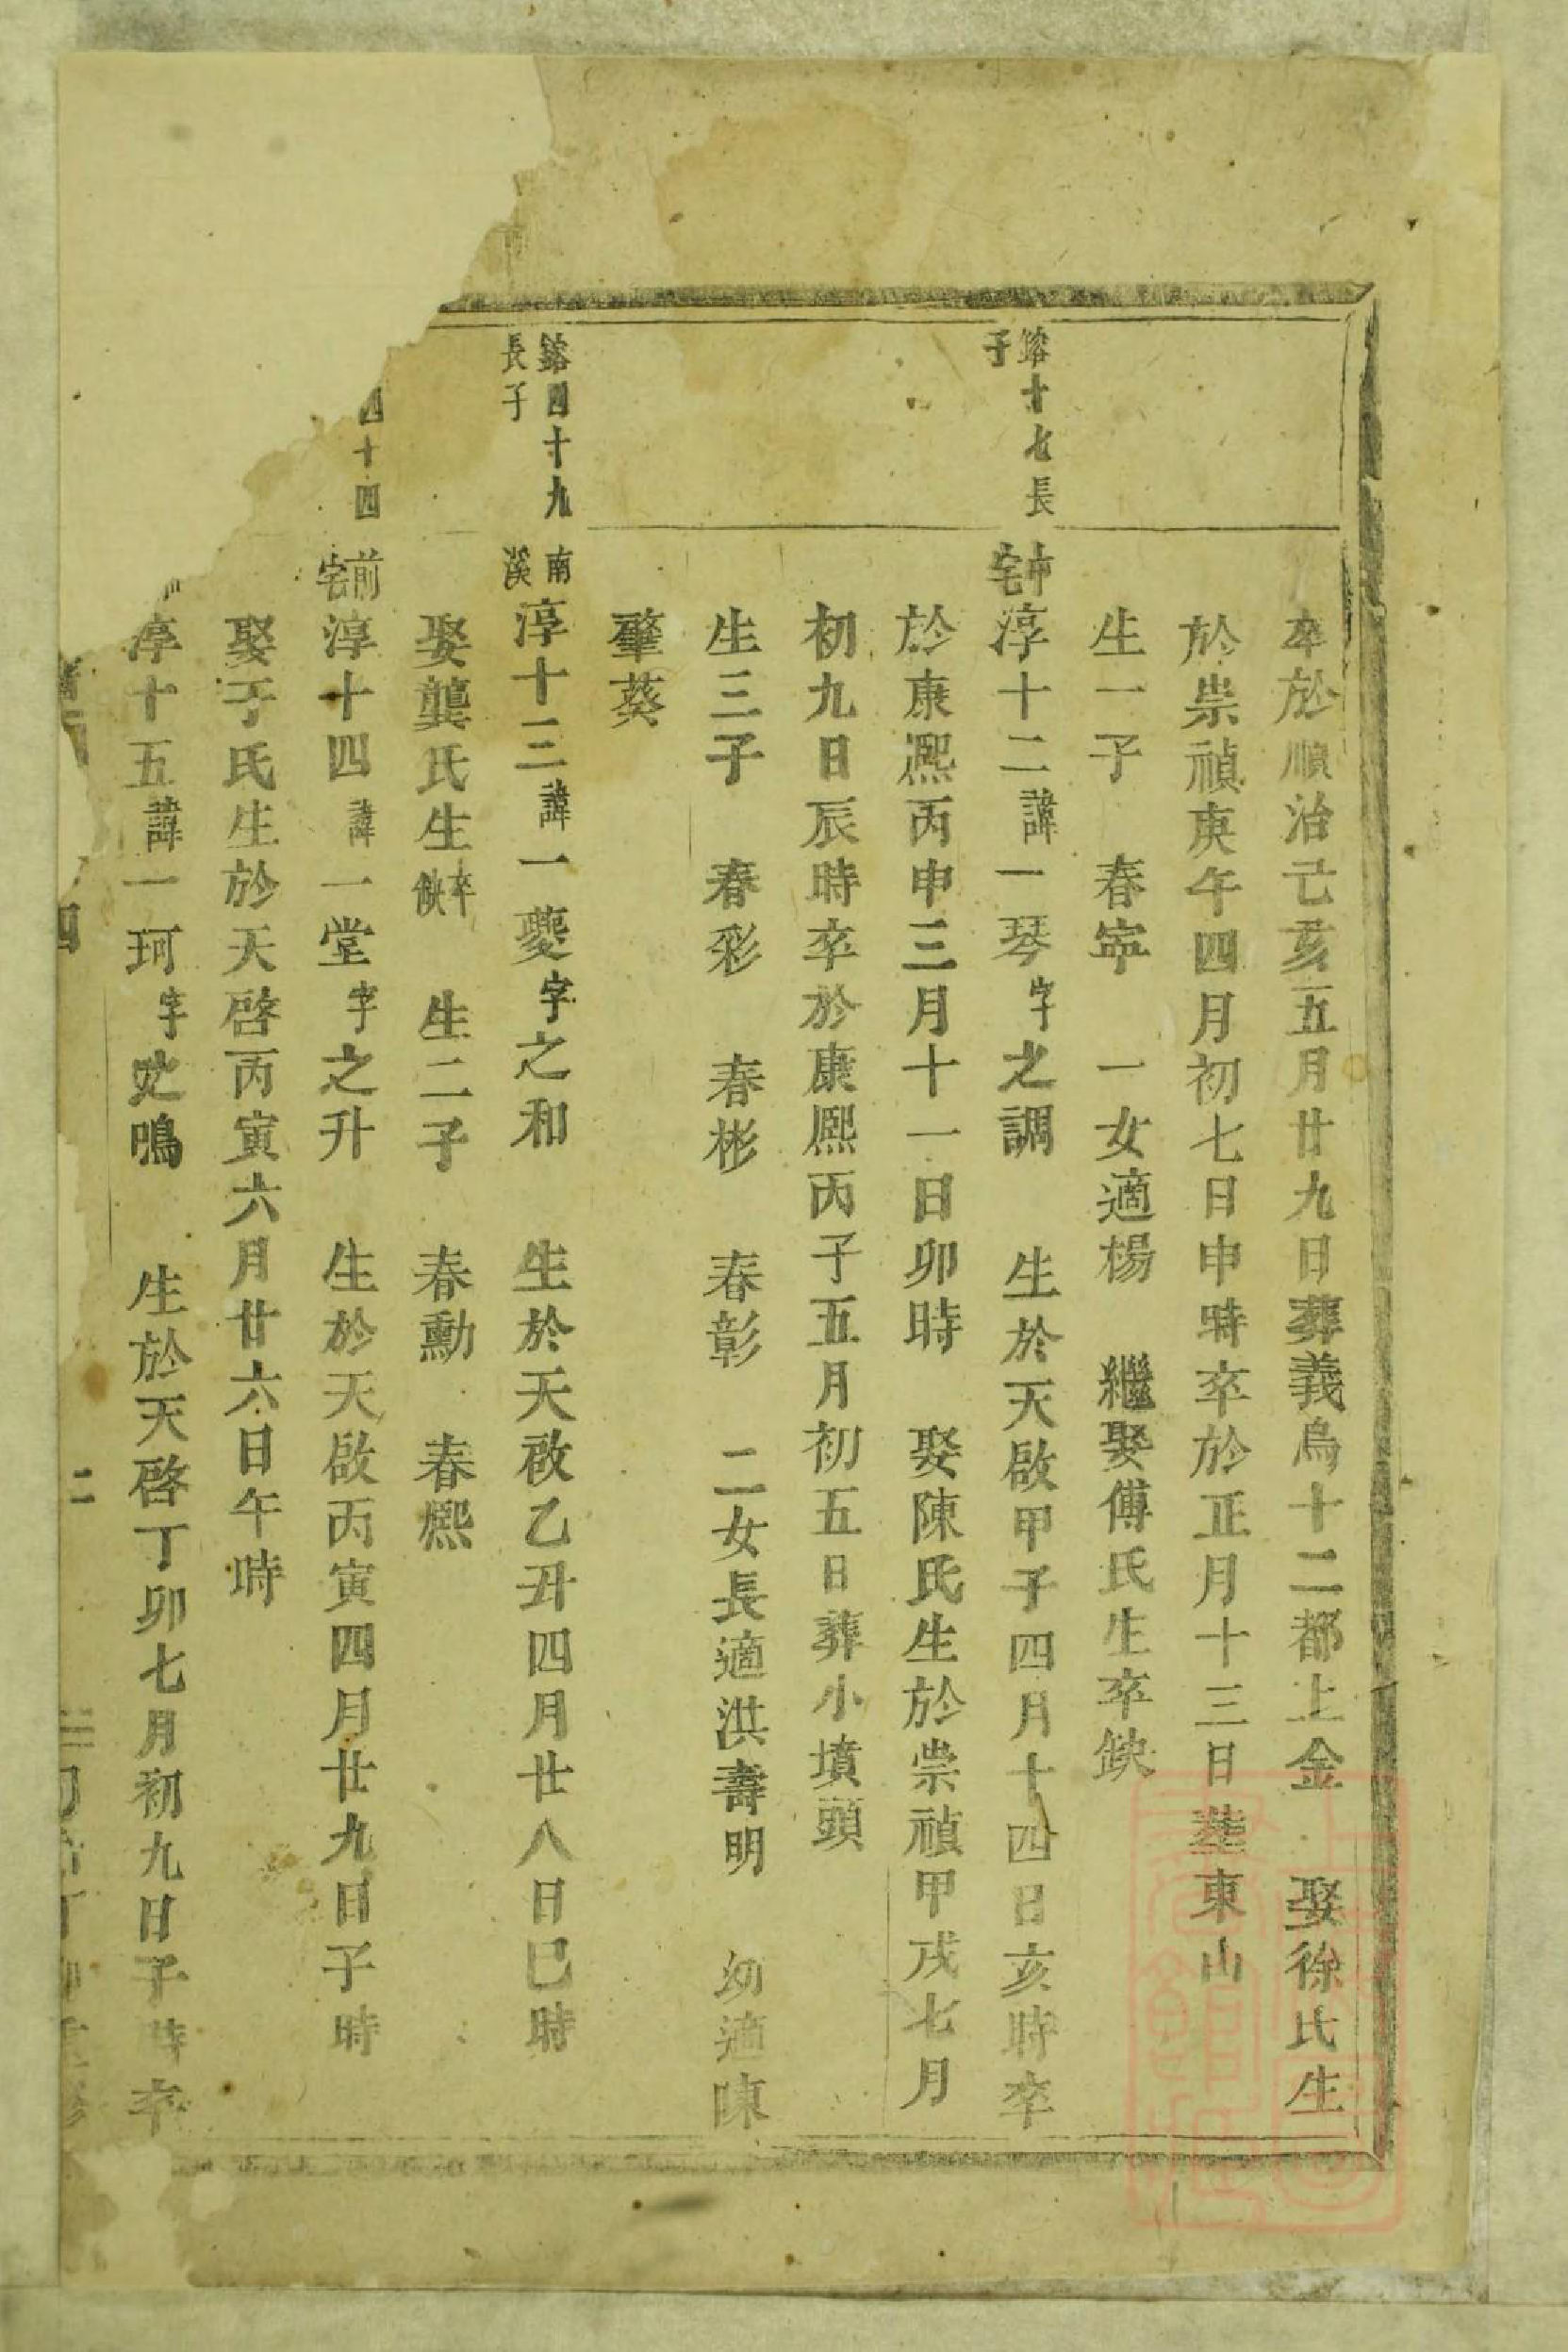 卒於順治己亥五月廿九日葬義烏十二都上金 娶徐氏生
於崇禎庚午四月初七日申時卒於正月十三日葬東山
生一子 春寧 一女適楊 繼娶傅氏生卒缺
鎔十七長子
中宅淳十二諱一琴字之調 生於天啟甲子四月十四日亥時卒
於康熙丙申三月十一日卯時 娶陳氏生於崇禎甲戌七月
初九日辰時卒於康熙丙子五月初五日葬小墳頭
生三子 春彩 春彬 春彰 二女長適洪壽明 幼適陳
肇葵
鎔四十九長子
南溪淳十三諱一夔字之和 生於天啟乙丑四月廿八日巳時
娶龔氏生卒缺 生二子 春勳 春熙
四十四
前宅淳十四諱一堂字之升 生於天啟丙寅四月廿九日子時
娶于氏生於天啓丙寅六月廿六日午時
淳十五諱一珂字 鳴 生於天啓丁卯七月初九日子時卒
四
二